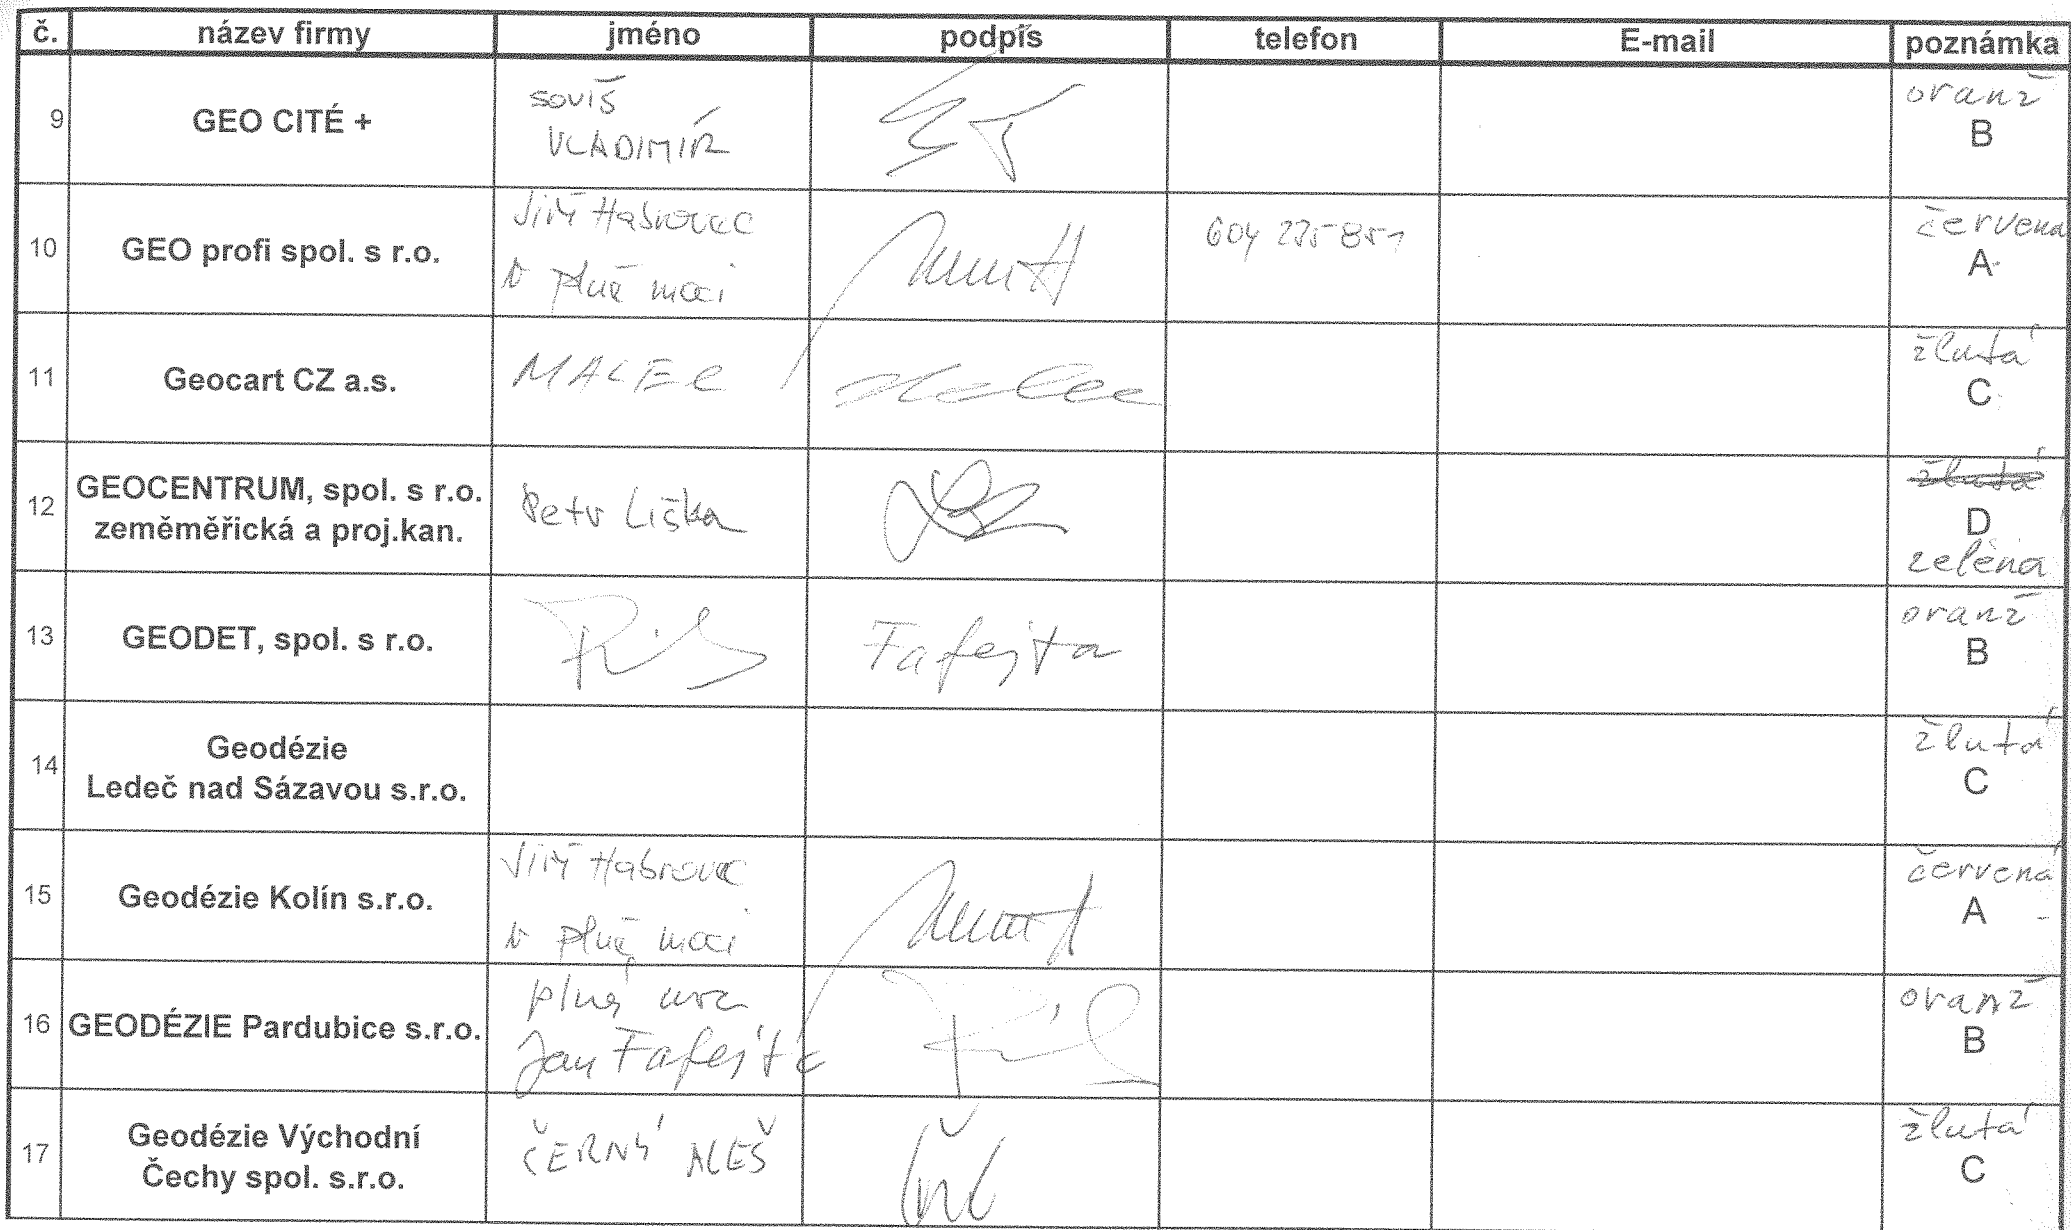 č. název firmy jméno podpis telefon E-mail poznámka
9 GEO CITÉ + SOUIŠ VLADIMÍR oranž B
10 GEO profi spol. s r.o. Jiří Habrovec v plné moci 604 235 851 červená A
11 Geocart CZ a.s. MALEC Malec žlutá C
12 GEOCENTRUM, spol. s r.o. Petr Liška žlutá
zeměměřická a proj.kan. D
zelená
13 GEODET, spol. s r.o. Fafejta oranž B
14 Geodézie žlutá
Ledeč nad Sázavou s.r.o. C
15 Geodézie Kolín s.r.o. Jiří Habrovec v plné moci červená A
16 GEODÉZIE Pardubice s.r.o. plná moc Jan Fafejta oranž B
17 Geodézie Východní ČERNÝ ALEŠ žlutá
Čechy spol. s.r.o. C